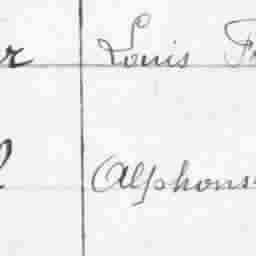 r Louis Fr
l Alphonse